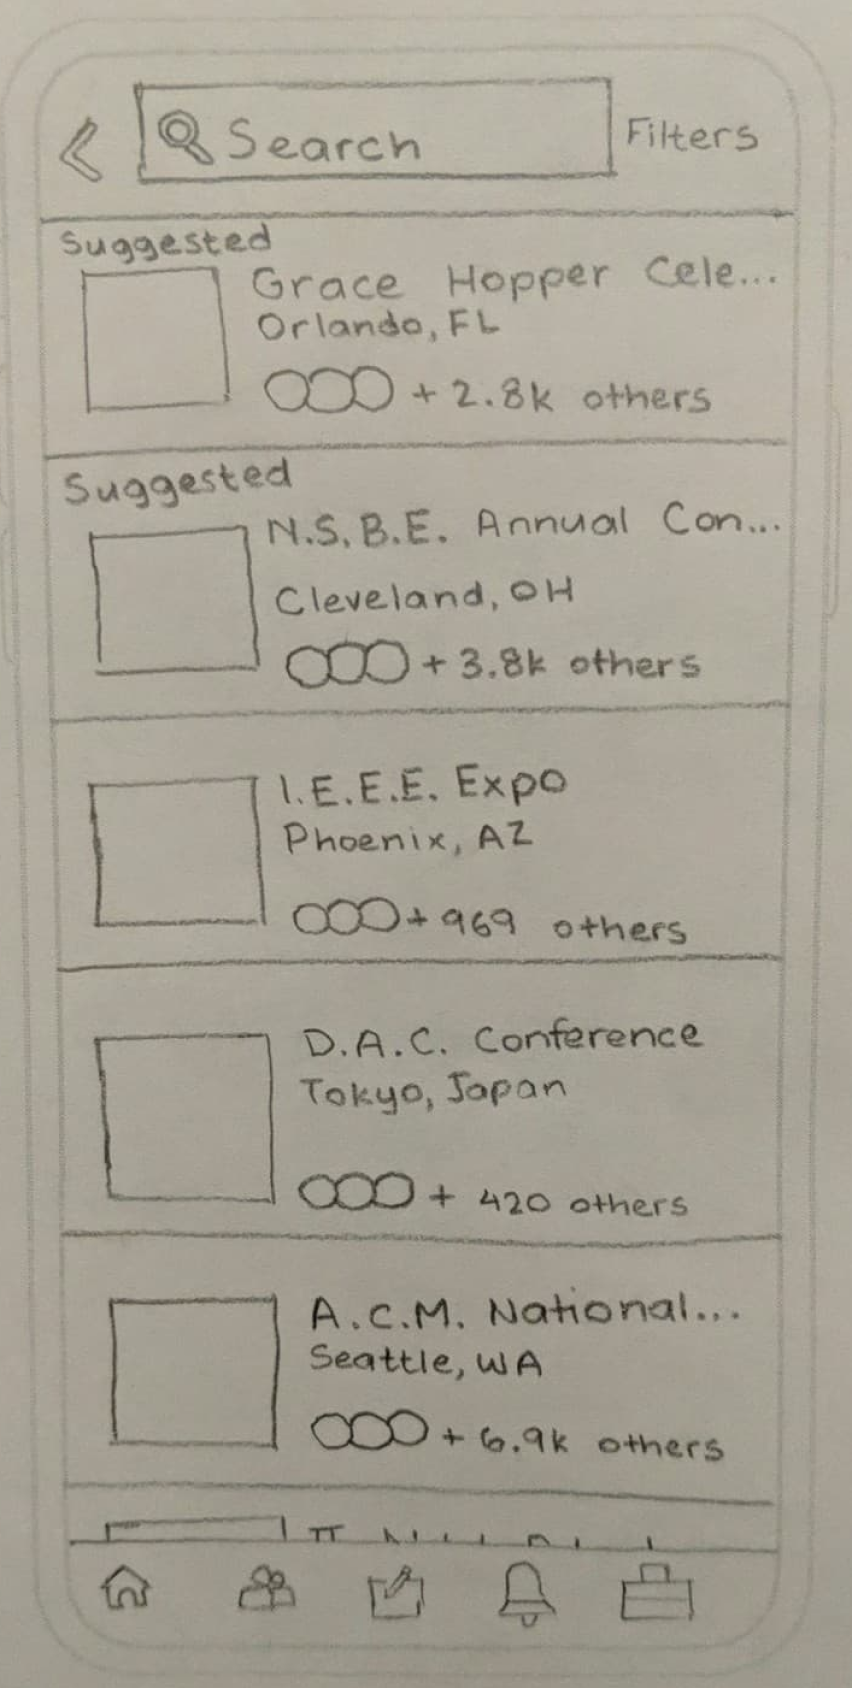 Search
Filters
Suggested
Grace Hopper Cele...
Orlando, FL
+ 2.8k others
Suggested
N.S.B.E. Annual Con...
Cleveland, OH
+ 3.8k others
I.E.E.E. Expo
Phoenix, AZ
+ 969 others
D.A.C. Conference
Tokyo, Japan
+ 420 others
A.C.M. National...
Seattle, WA
+ 6.9k others